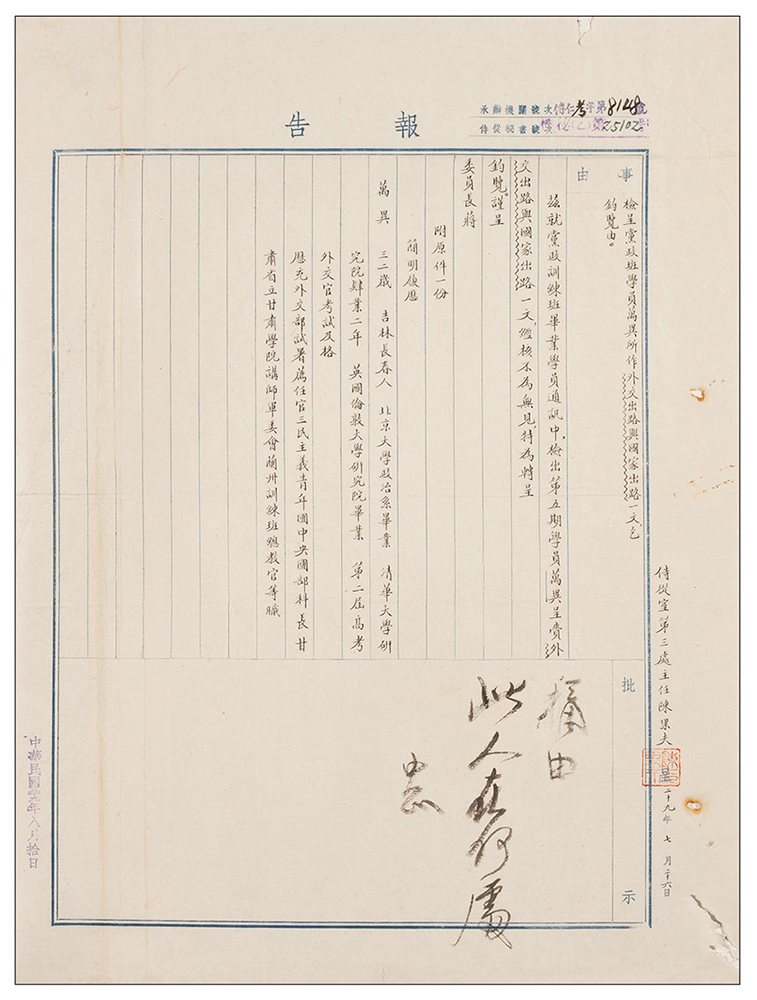 報告
承辦機關號次侍仁考字第8148號
侍從秘書號次 機秘(乙)第25102號
事由
檢呈黨政班學員萬異所作外交出路與國家出路一文乞
鈞覽由。
茲就黨政訓練班畢業學員通訊中,檢出第五期學員萬異呈賫外
交出路與國家出路一文,經核不為無見,特為轉呈
鈞覽。謹呈
委員長蔣
附原件一份
簡明履歷
萬異 三二歲 吉林長春人 北京大學政治系畢業 清華大學研
究院肄業二年 英國倫敦大學研究院畢業 第二屆高考
外交官考試及格
歷充外交部試署薦任官三民主義青年團中央團部科長甘
肅省立甘肅學院講師軍委會蘭州訓練班總教官等職
侍從室第三處主任陳果夫 呈 二十九年七月二十六日
批示
摘由
此人在何處
中正
中華民國廿九年八月拾日